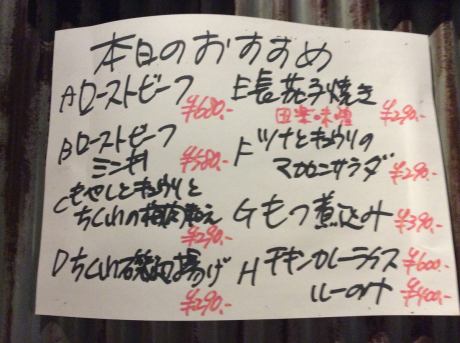 本日のおすすめ
Aローストビーフ
¥680.-
Bローストビーフ
ミニ丼
¥580.-
Cもやしとキュウリと
ちくわの和え
¥290.-
Dちくわ磯辺揚げ
¥290.-
E長茄子焼き
田楽味噌
¥290.-
Fツナとキュウリの
マカロニサラダ
¥290.-
Gもつ煮込み
¥390.-
Hチキンカレーライス
¥600.-
ルーのみ
¥400.-